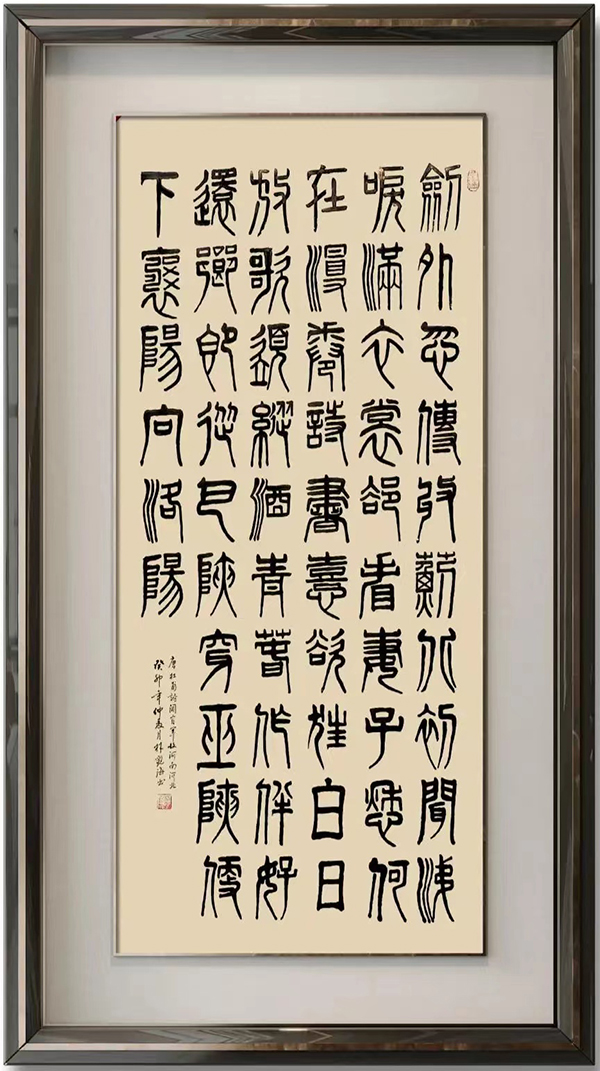 劍外忽傳收薊北初聞涕
淚滿衣裳卻看妻子愁何
在漫卷詩書喜欲狂白日
放歌須縱酒青春作伴好
還鄉即從巴峽穿巫峽便
下襄陽向洛陽
唐杜甫詩聞官軍收河南河北
癸卯年仲夏月林海書